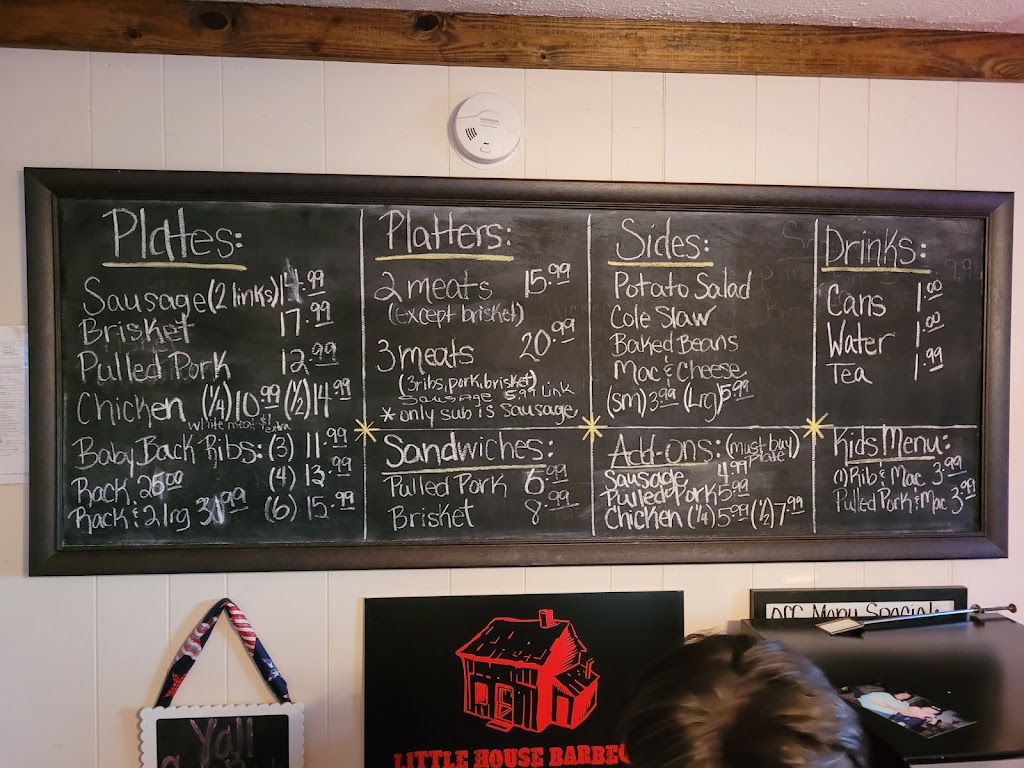 Plates:
Sausage (2 links) 14.99
Brisket 17.99
Pulled Pork 12.99
Chicken (1/4) 10.99 (1/2) 14.99
white meat $1 extra
Baby Back Ribs: (3) 11.99
(4) 13.99
Rack 26.00
Rack & 2 lrg
(6) 15.99
Platters:
2 meats 15.99
(except brisket)
3 meats 20.99
(3 ribs, pork, brisket)
Sausage 5.99 Link
* only sub is sausage
Sandwiches:
Pulled Pork 6.99
Brisket 8.99
Sides:
Potato Salad
Cole Slaw
Baked Beans
Mac & Cheese
(sm) 3.99 (Lrg) 5.99
Add-ons: (must buy plate)
Sausage 4.99
Pulled Pork 5.99
Chicken (1/4) 5.99 (1/2) 7.99
Drinks:
Cans 1.00
Water 1.00
Tea 1.99
Kids Menu:
(1) Rib & Mac 3.99
Pulled Pork & Mac 3.99
Y'all
LITTLE HOUSE BARBEQ
Menu Specials